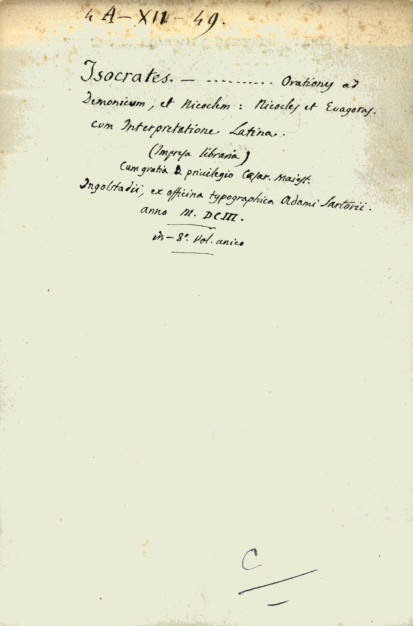 4A-XII-49.
Isocrates. — .......... Orationes ad
Demonicum, et Nicoclem: Nicocles et Euagoras.
cum Interpretatione Latina.
(Impresa libraria)
Cum gratia & privilegio Cæsar. Maiest.
Ingolstadii, ex officina typographica Adami Sartorii.
anno M. DCIII.
in-8º. Vol. unico
C